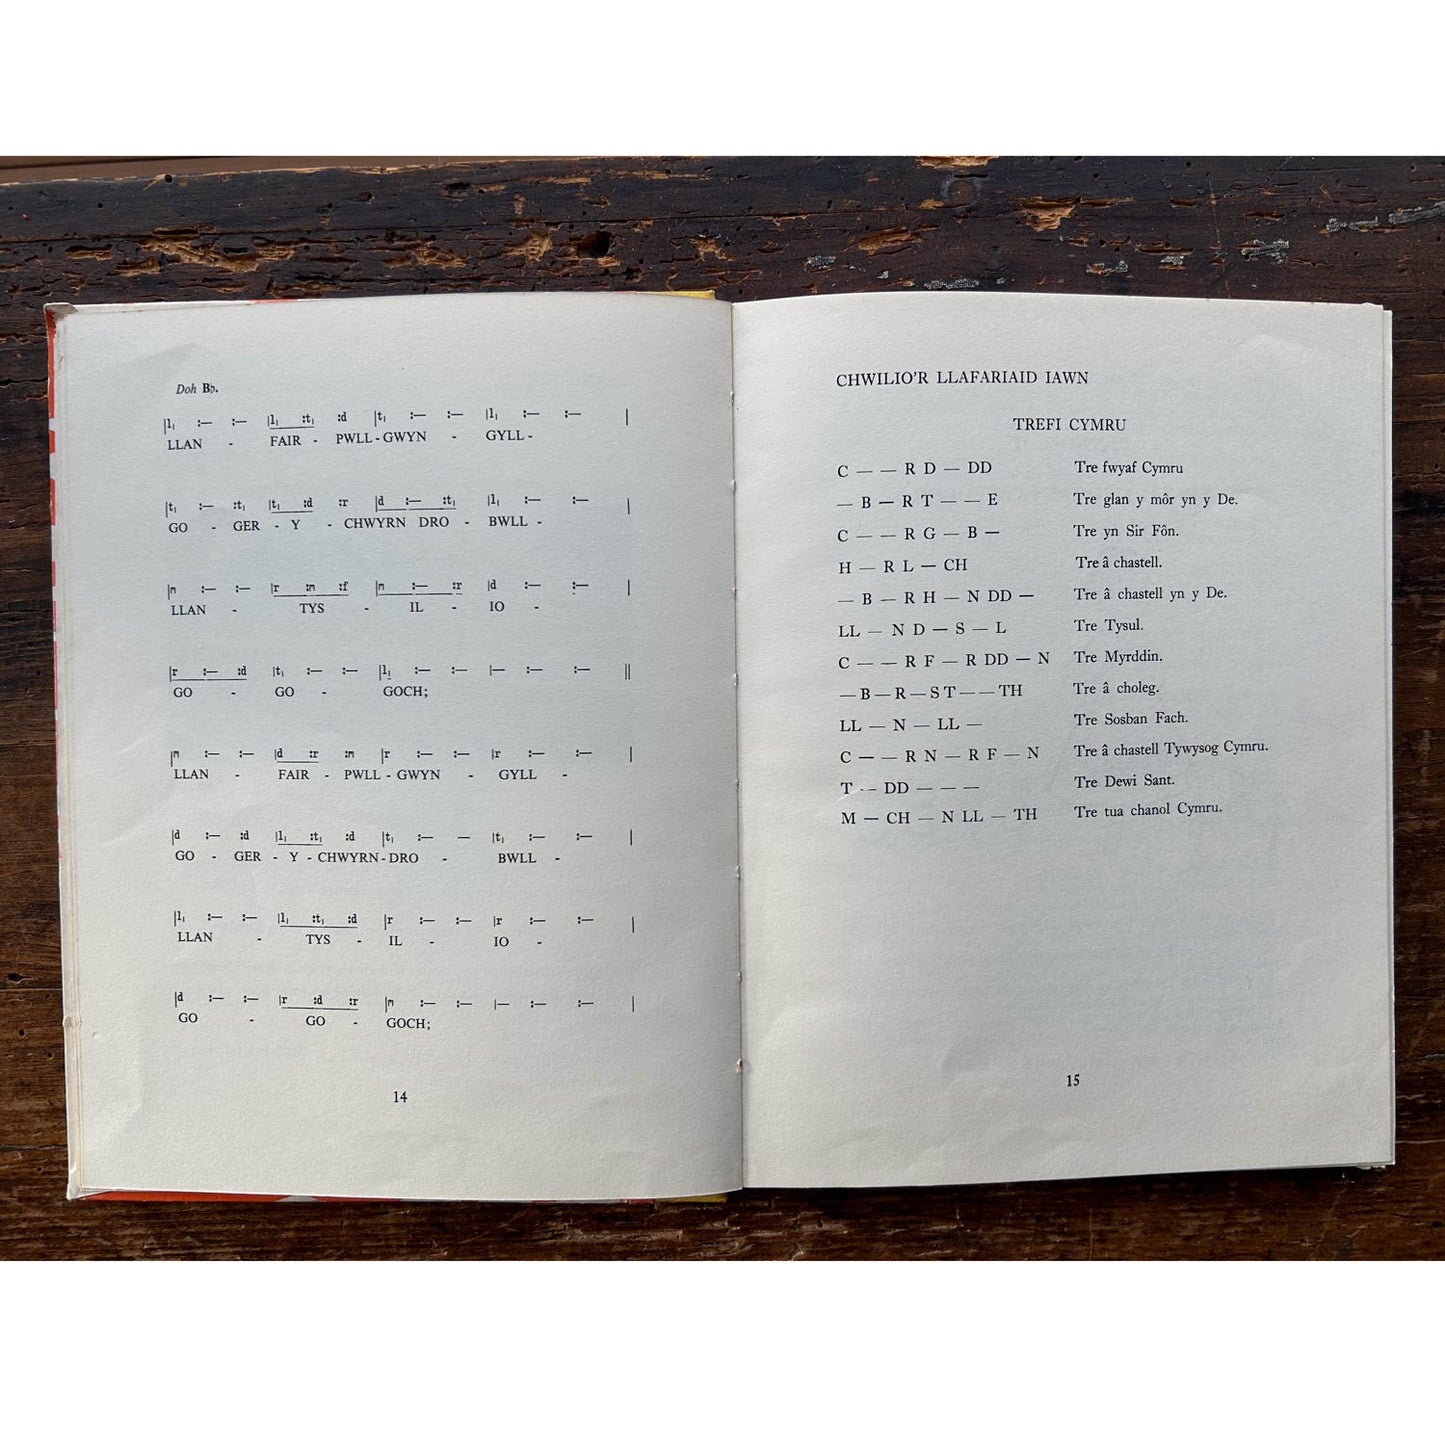 Doh B♭.
|l₁ :— :— |l₁ :t₁ :d |t₁ :— :— |l₁ :— :— |
LLAN - FAIR - PWLL - GWYN - GYLL -
|t₁ :— :t₁ |t₁ :d :r |d :— :t₁ |l₁ :— :— |
GO - GER - Y - CHWYRN DRO - BWLL -
|m :— :— |r :m :f |m :— :r |d :— :— |
LLAN - TYS - IL - IO -
|r :— :d |t₁ :— :— |l₁ :— :— |— :— :— ||
GO - GO - GOCH;
|m :— :— |d :r :m |r :— :— |r :— :— |
LLAN - FAIR - PWLL - GWYN - GYLL -
|d :— :d |l₁ :t₁ :d |t₁ :— — |t₁ :— :— |
GO - GER - Y - CHWYRN - DRO - BWLL -
|l₁ :— :— |l₁ :t₁ :d |r :— :— |r :— :— |
LLAN - TYS - IL - IO -
|d :— :— |r :d :r |m :— :— |— :— :— |
GO - GO - GOCH;
14
CHWILIO'R LLAFARIAID IAWN
TREFI CYMRU
C — — R D — DD Tre fwyaf Cymru
— B — R T — — E Tre glan y môr yn y De.
C — — R G — B — Tre yn Sir Fôn.
H — R L — CH Tre â chastell.
— B — R H — N DD — Tre â chastell yn y De.
LL — N D — S — L Tre Tysul.
C — — R F — R DD — N Tre Myrddin.
— B — R — S T — — TH Tre â choleg.
LL — N — LL — Tre Sosban Fach.
C — — R N — R F — N Tre â chastell Tywysog Cymru.
T — DD — — — Tre Dewi Sant.
M — CH — N LL — TH Tre tua chanol Cymru.
15